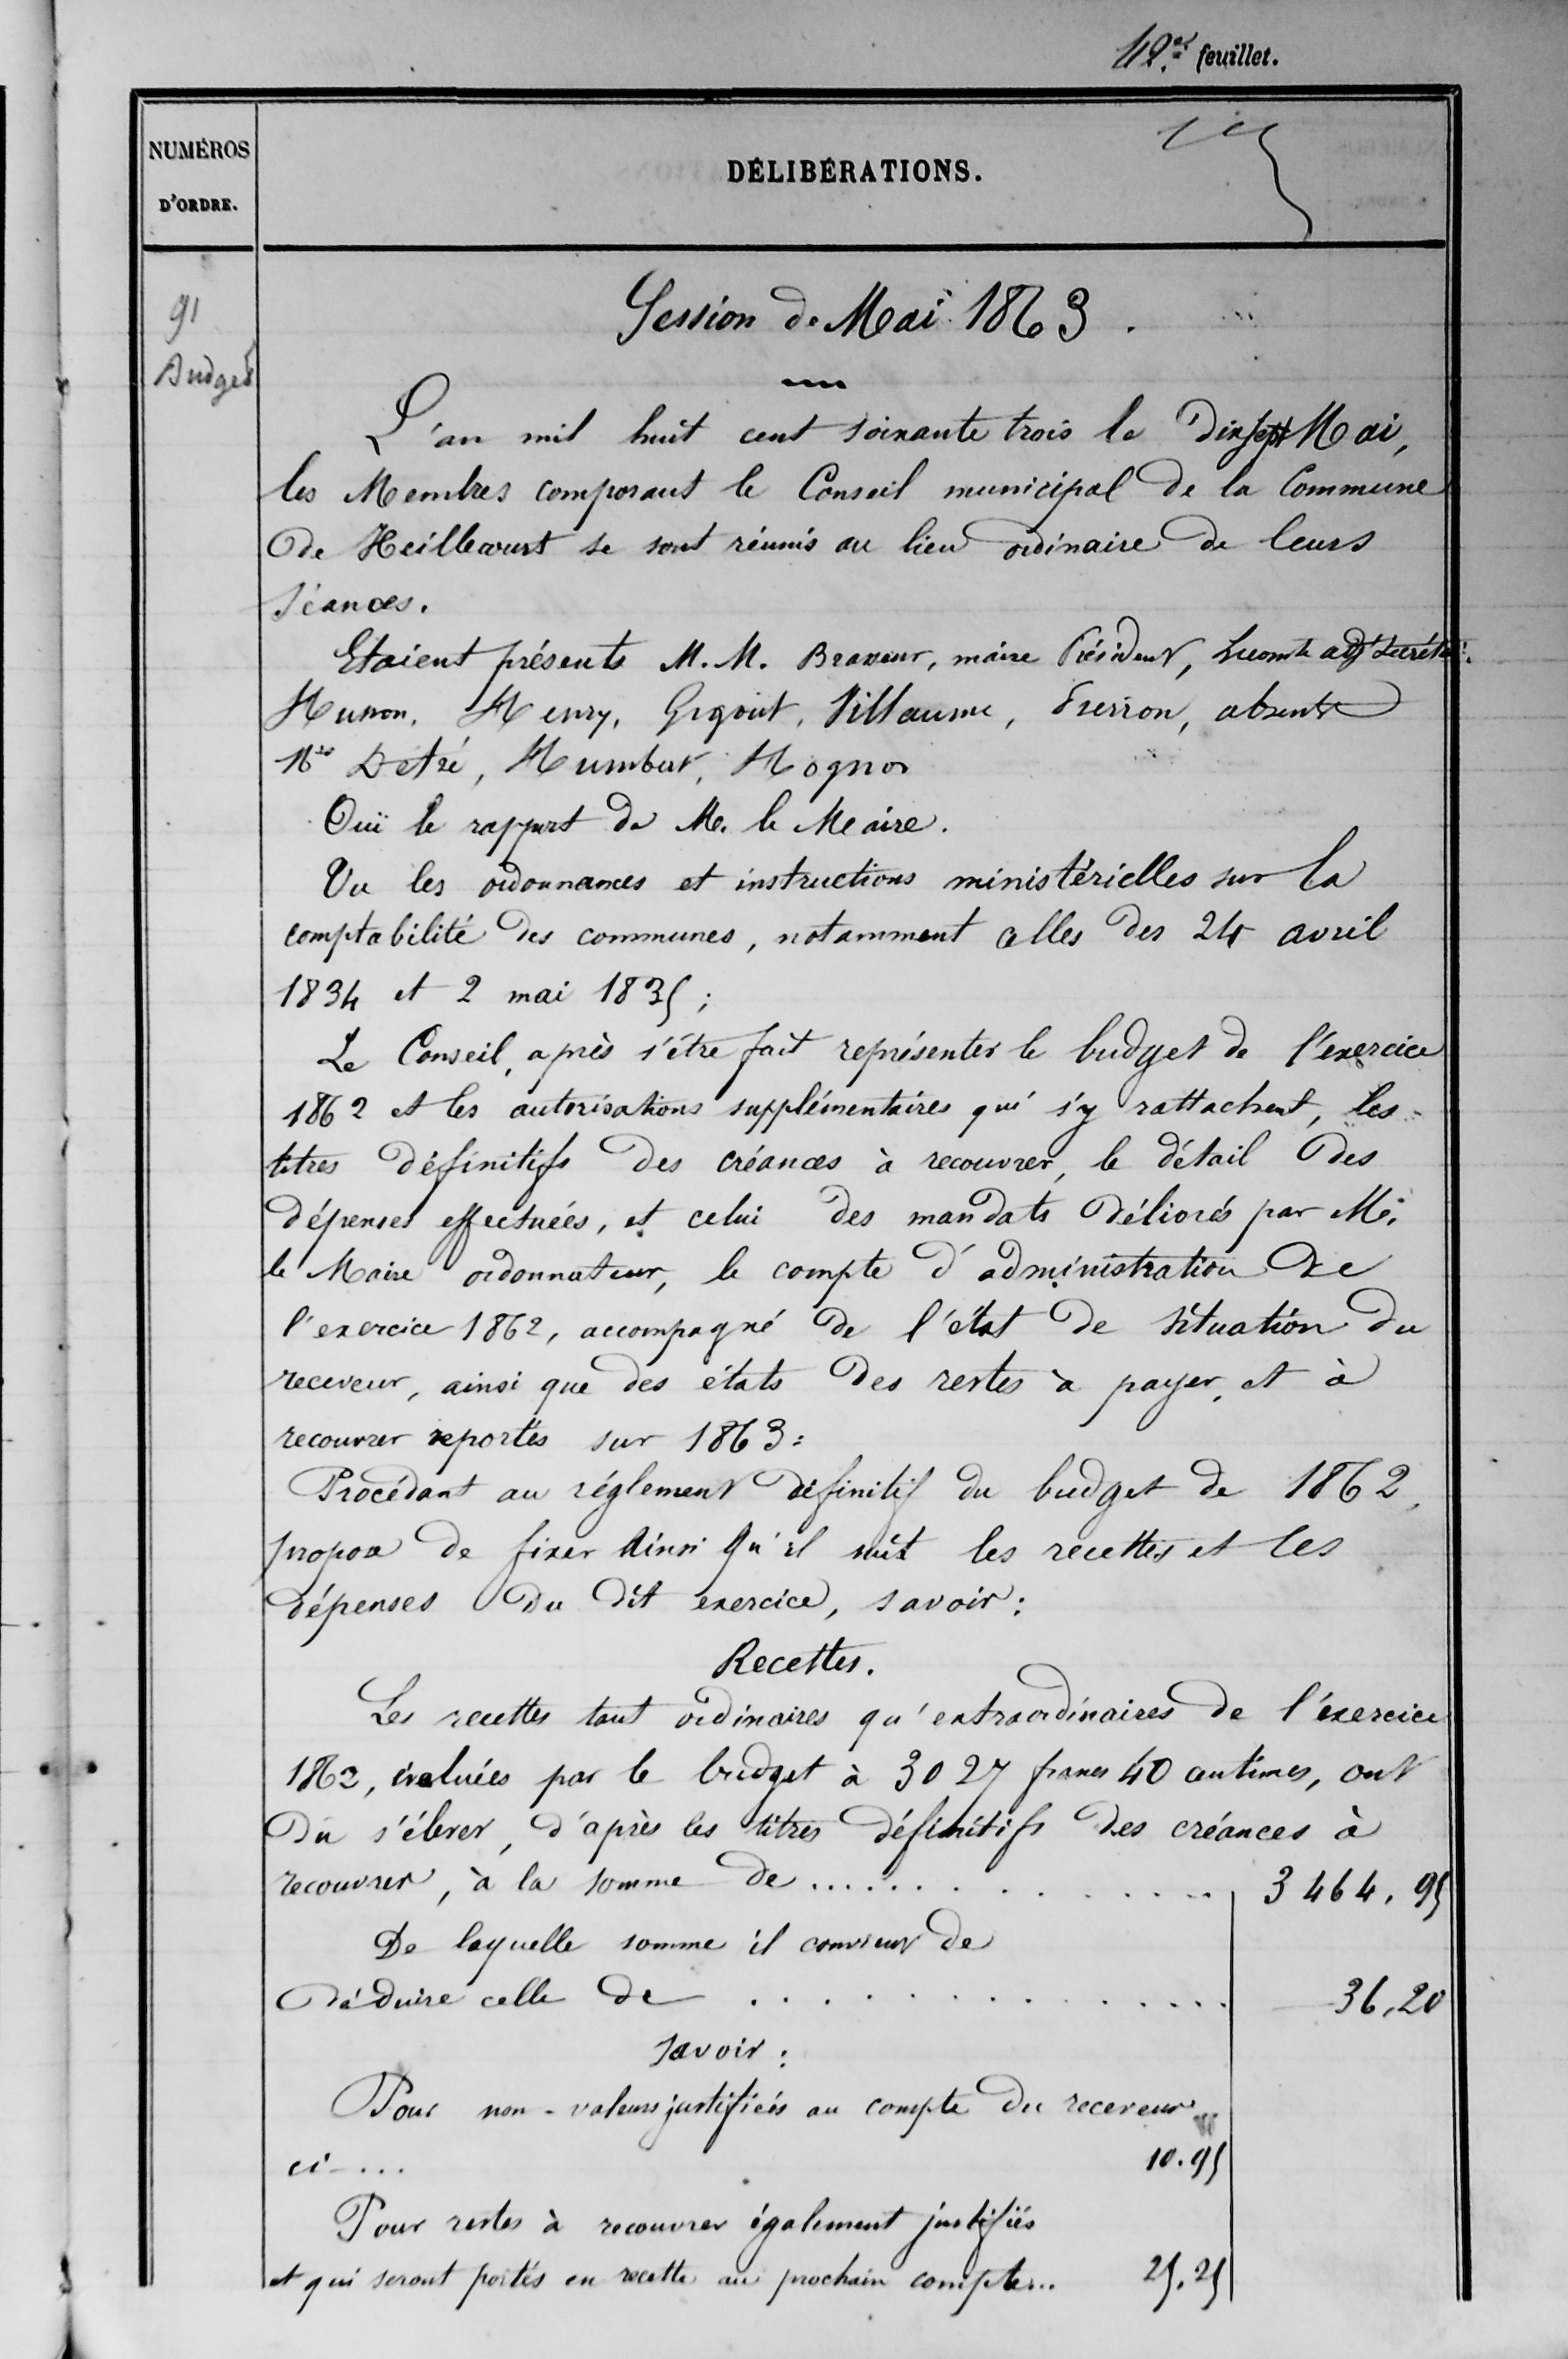 42.e feuillet.
NUMÉROS
D'ORDRE.
DÉLIBÉRATIONS.
91
Budget
Session de Mai 1863.
L'an mil huit cent soixante trois le dix sept Mai,
les Membres composant le Conseil municipal de la Commune
de Heillecourt se sont réunis au lieu ordinaire de leurs
séances.
Etaient présents M.M. Braneur, maire Président, Lecomte adjt
Husson, Henry, Gigout, Villaume, absents
Détré, Humbert, Hognon
Ouï le rapport de M. le Maire.
Vu les ordonnances et instructions ministérielles sur la
comptabilité des communes, notamment celles des 24 avril
1834 et 2 mai 1835;
Le Conseil, après s'être fait représenter le budget de l'exercice
1862 et les autorisations supplémentaires qui s'y rattachent, les
titres définitifs des créances à recouvrer, le détail des
dépenses effectuées, et celui des mandats délivrés par M.
le Maire ordonnateur, le compte d'administration de
l'exercice 1862, accompagné de l'état de situation du
receveur, ainsi que des états des restes à payer, et à
recouvrer reportés sur 1863:
Procédant au réglement définitif du budget de 1862,
propose de fixer Ainsi Qu'il suit les recettes et les
dépenses du dit exercice, savoir:
Recettes.
Les recettes tant ordinaires qu'extraordinaires de l'exercice
1862, évaluées par le budget à 3027 francs 40 centimes, ont
du s'élever, d'après les titres définitifs des créances à
recouvrer, à la somme de ............... 3464.95
De laquelle somme il convient de
déduire celle de ............... 36,20
savoir:
Pour non-valeurs justifiées au compte du receveur
ci-... 10.95
Pour restes à recouvrer également justifiés
et qui seront portés en recette au prochain compte... 25.25